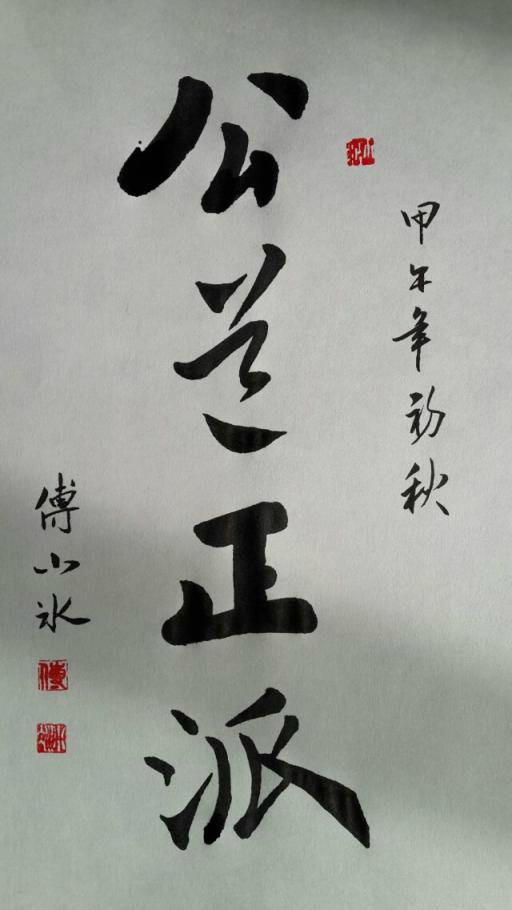 甲午年初秋
公道正派
傅小冰
傅